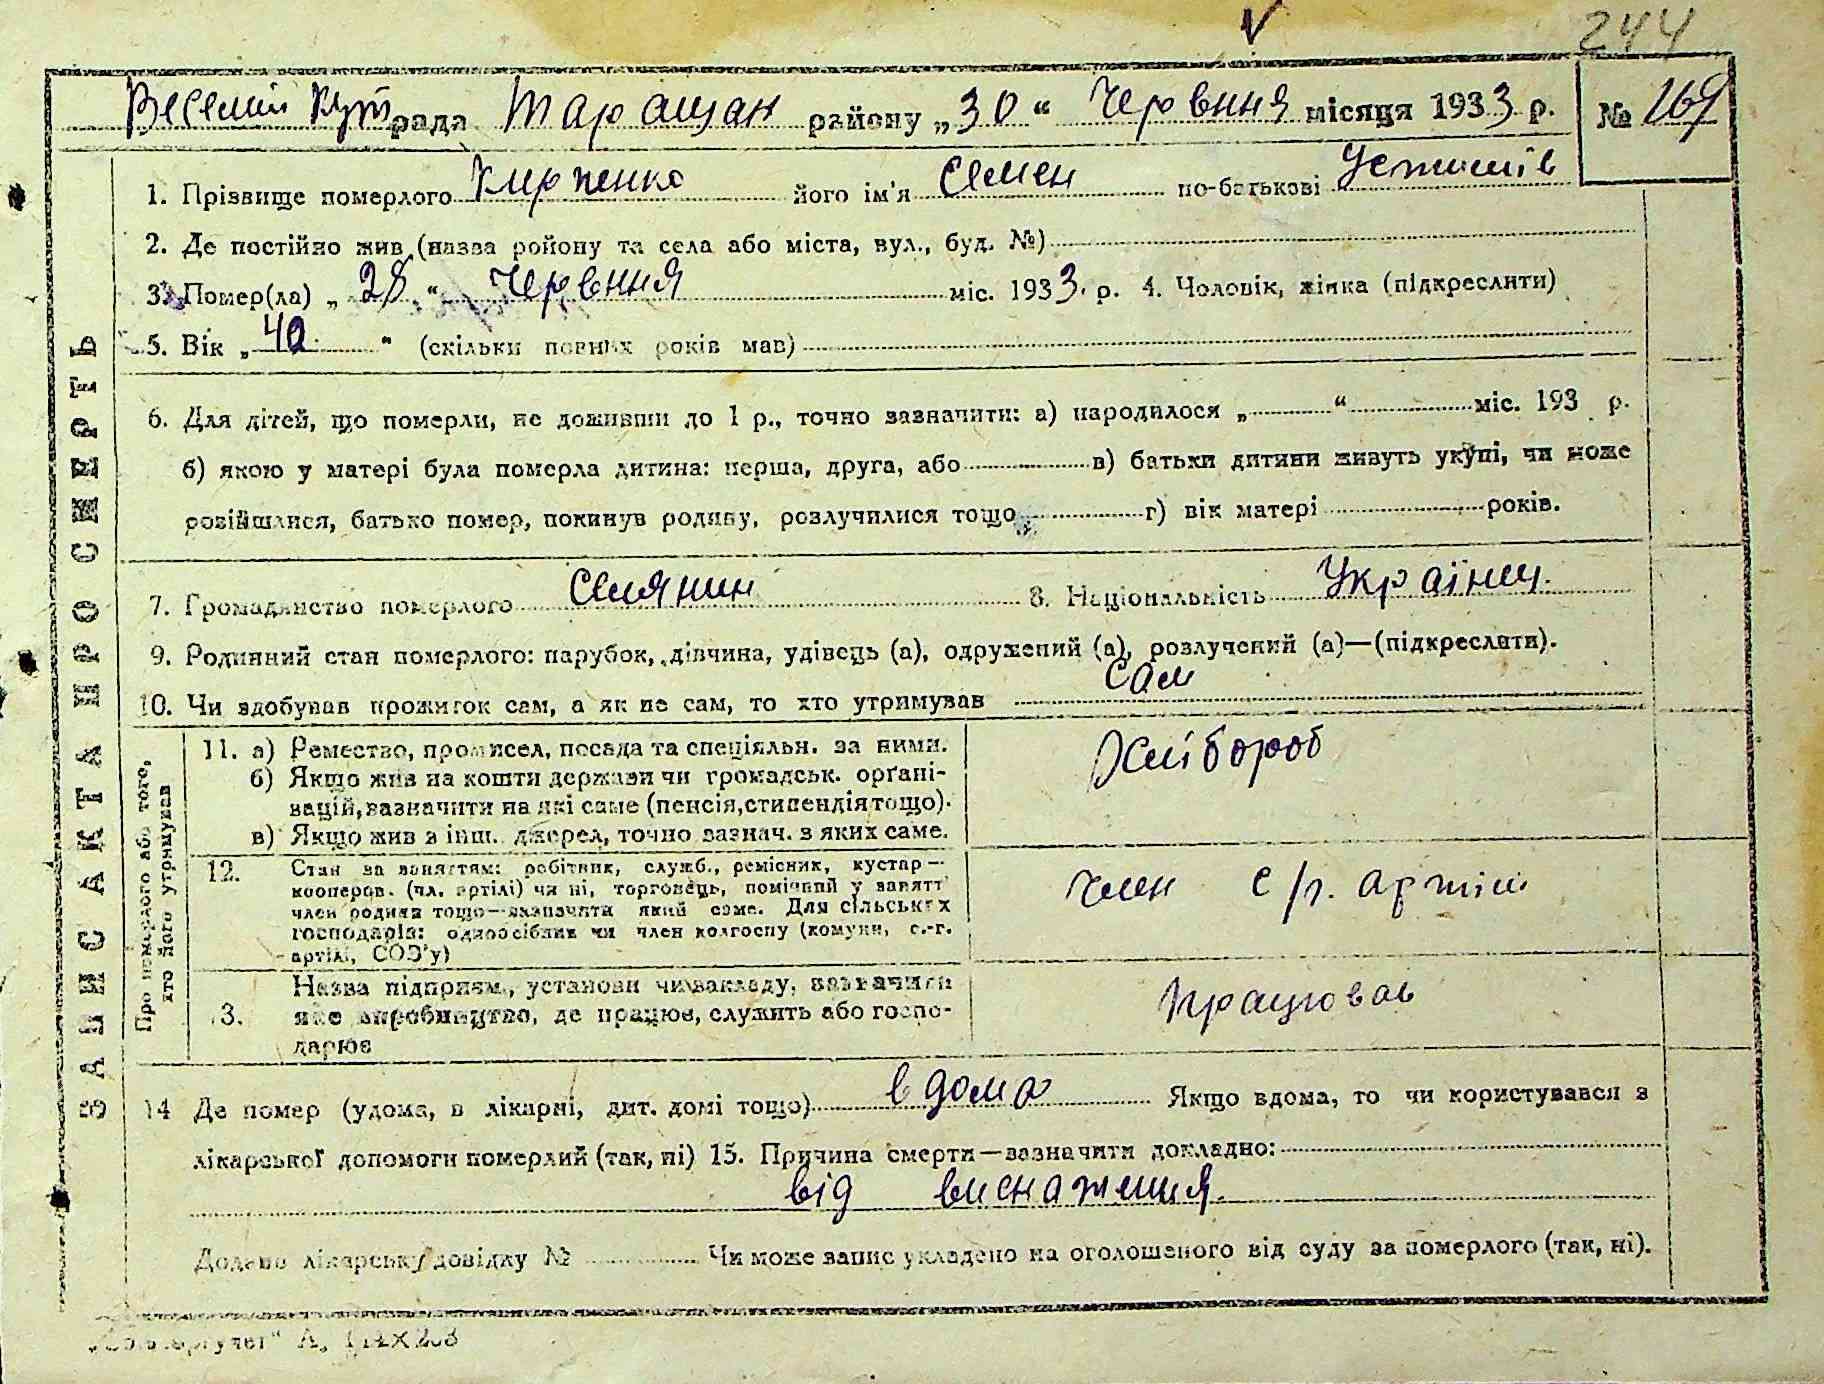 244
Веселий Кут рада Таращан району „30“ Червння місяця 1933 р. № 169
1. Прізвище померлого Кирпенко його ім'я Семен по-батькові
2. Де постійно жив (назва ройону та села або міста, вул., буд. №)
3. Помер(ла) „28“ Червння міс. 1933 р. 4. Чоловік, жінка (підкреслити)
5. Вік „40“ (скільки повних років мав)
6. Для дітей, що померли, не доживши до 1 р., точно зазначити: а) народилося „ “ міс. 193 р.
б) якою у матері була померла дитина: перша, друга, або в) батьки дитини живуть укупі, чи може
розійшлися, батько помер, покинув родину, розлучилися тощо г) вік матері років.
7. Громадянство померлого селянин 8. Національність Українец.
9. Родинний стан померлого: парубок, дівчина, удівець (а), одружений (а), розлучений (а)—(підкреслити).
10. Чи здобував прожиток сам, а як не сам, то хто утримував сам
ЗАПИС АКТА ПРО СМЕРТЬ
Про померлого або того,
хто його утримував
11. а) Ремество, промисел, посада та спеціяльн. за ними.
б) Якщо жив на кошти держави чи громадськ. органі-
зацій, зазначити на які саме (пенсія, стипендія тощо).
в) Якщо жив з інш. джерел, точно зазнач. з яких саме.
Хлібороб
12. Стан за заняттям: робітник, служб., ремісник, кустар—
кооперов. (чл. артілі) чи ні, торговець, помічний у занятт
член родини тощо—зазначити який саме. Для сільських
господарів: одноосібник чи член колгоспу (комуни, с.-г.
артілі, СОЗ'у)
член с/г. артілі
13. Назва підприєм., установи чи закладу, зазначити
яке виробництво, де працює, служить або госпо-
дарює
працював
14 Де помер (удома, в лікарні, дит. домі тощо) вдома Якщо вдома, то чи користувався з
лікарської допомоги померлий (так, ні) 15. Причина смерти—зазначити докладно:
від виснаження.
Додано лікарську довідку № Чи може запис укладено на оголошеного від суду за померлого (так, ні).